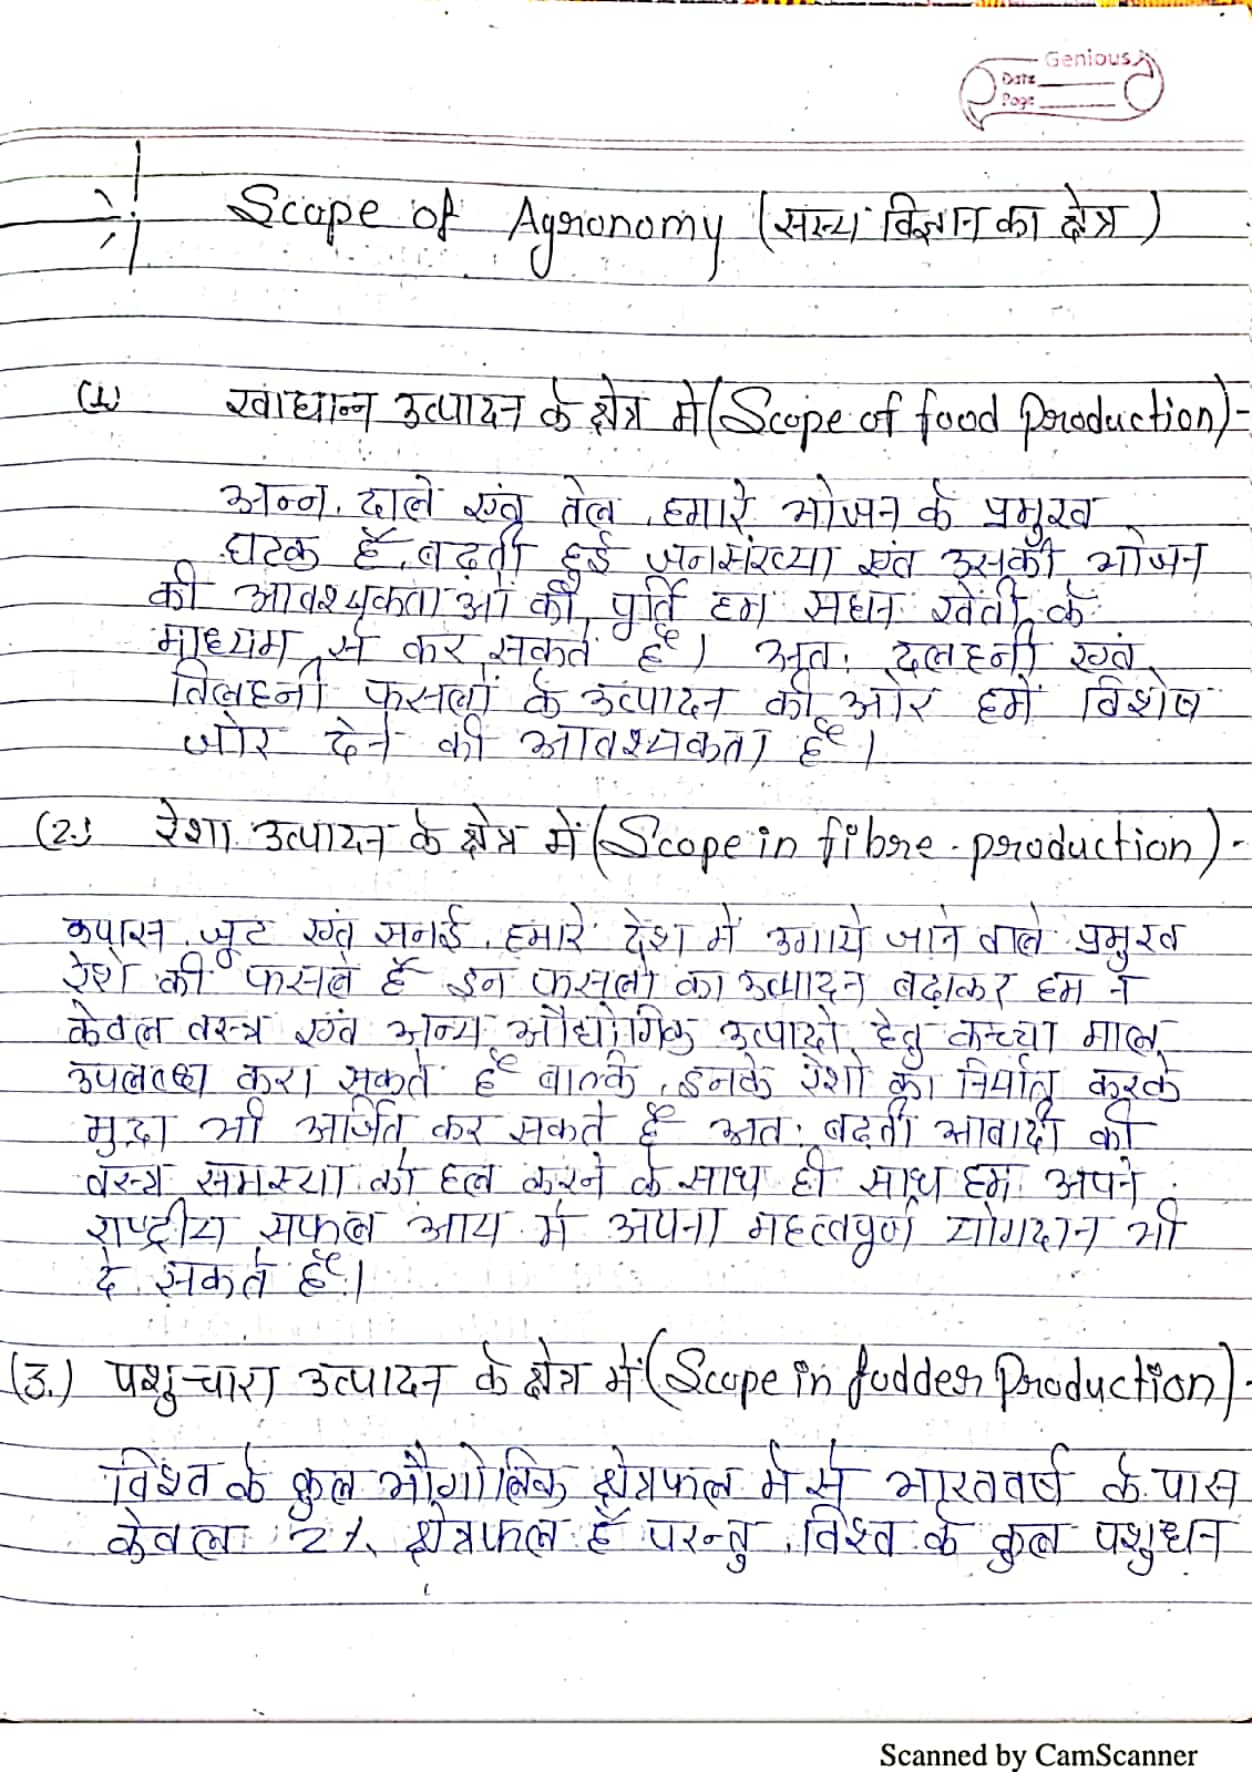 Genious
Date
Page
Scope of Agronomy (सस्य विज्ञान का क्षेत्र)
(1) खाद्यान्न उत्पादन के क्षेत्र में (Scope of food production)-
अन्न, दाले एंव तेल, हमारे भोजन के प्रमुख
घटक हैं, बढ़ती हुई जनसंख्या एंव उसकी भोजन
की आवश्यकताओं की, पूर्ति हम सघन खेती के
माध्यम से कर सकते है। अतः दलहनी एवं
तिलहनी फसलों के उत्पादन की ओर हमें विशेष
जोर देने की आवश्यकता है।
(2.) रेशा उत्पादन के क्षेत्र में (Scope in fibre-production)-
कपास, जूट एंव सनई, हमारे देश में उगाये जाने वाले प्रमुख
रेशे की फसले हैं इन फसलों का उत्पादन बढ़ाकर हम न
केवल वस्त्र एंव अन्य औद्योगिक उत्पादो हेतु कच्चा माल
उपलब्ध करा सकते है बल्कि, इनके रेशो का निर्यात करके
मुद्रा भी अर्जित कर सकते है अतः बढ़ती आबादी की
वस्त्र समस्या को हल करने के साथ ही साथ हम अपने
राष्ट्रीय सफल आय में अपना महत्वपूर्ण योगदान भी
दे सकते है।
(3.) पशुचारा उत्पादन के क्षेत्र में (Scope in fodder Production)-
विश्व के कुल भौगोलिक क्षेत्रफल में से भारतवर्ष के पास
केवल 2% क्षेत्रफल हैं परन्तु, विश्व के कुल पशुधन
Scanned by CamScanner